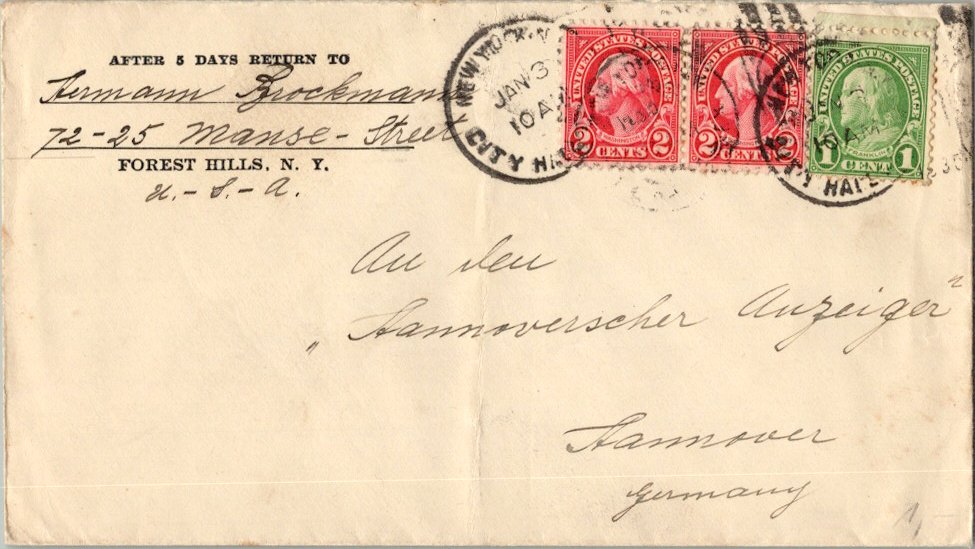 AFTER 5 DAYS RETURN TO
Hermann Brockmann
72-25 Manse-Street
FOREST HILLS, N. Y.
U.-S.-A.
NEW YORK, N
JAN 3
10 AM
CITY HALL
UNITED STATES POSTAGE
2 CENTS 2
UNITED STATES POSTAGE
2 CENTS 2
10 AM
CITY HALL
UNITED STATES POSTAGE
FRANKLIN
1 CENT 1
An den
„Hannoverscher Anzeiger“
Hannover
Germany
1,-